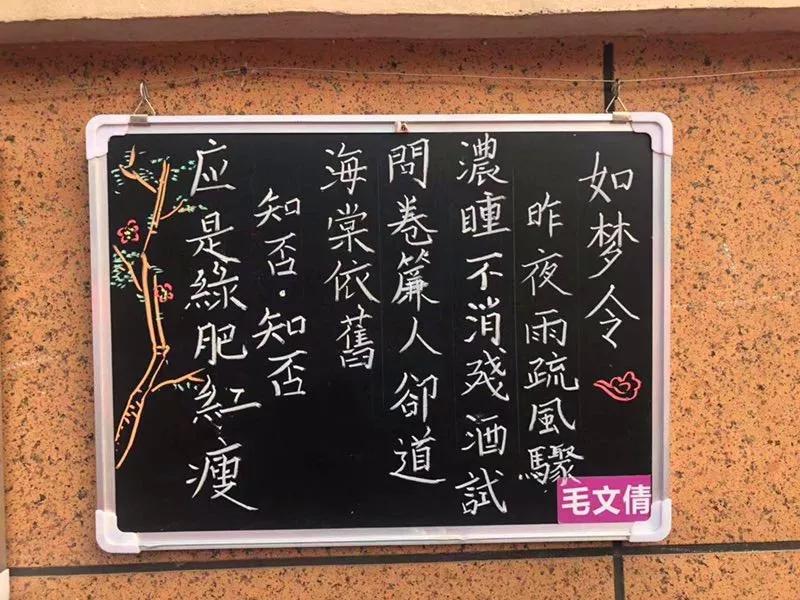 如梦令
昨夜雨疏風驟
濃睡不消残酒試
問卷簾人卻道
海棠依舊
知否·知否
应是綠肥紅瘦
毛文倩